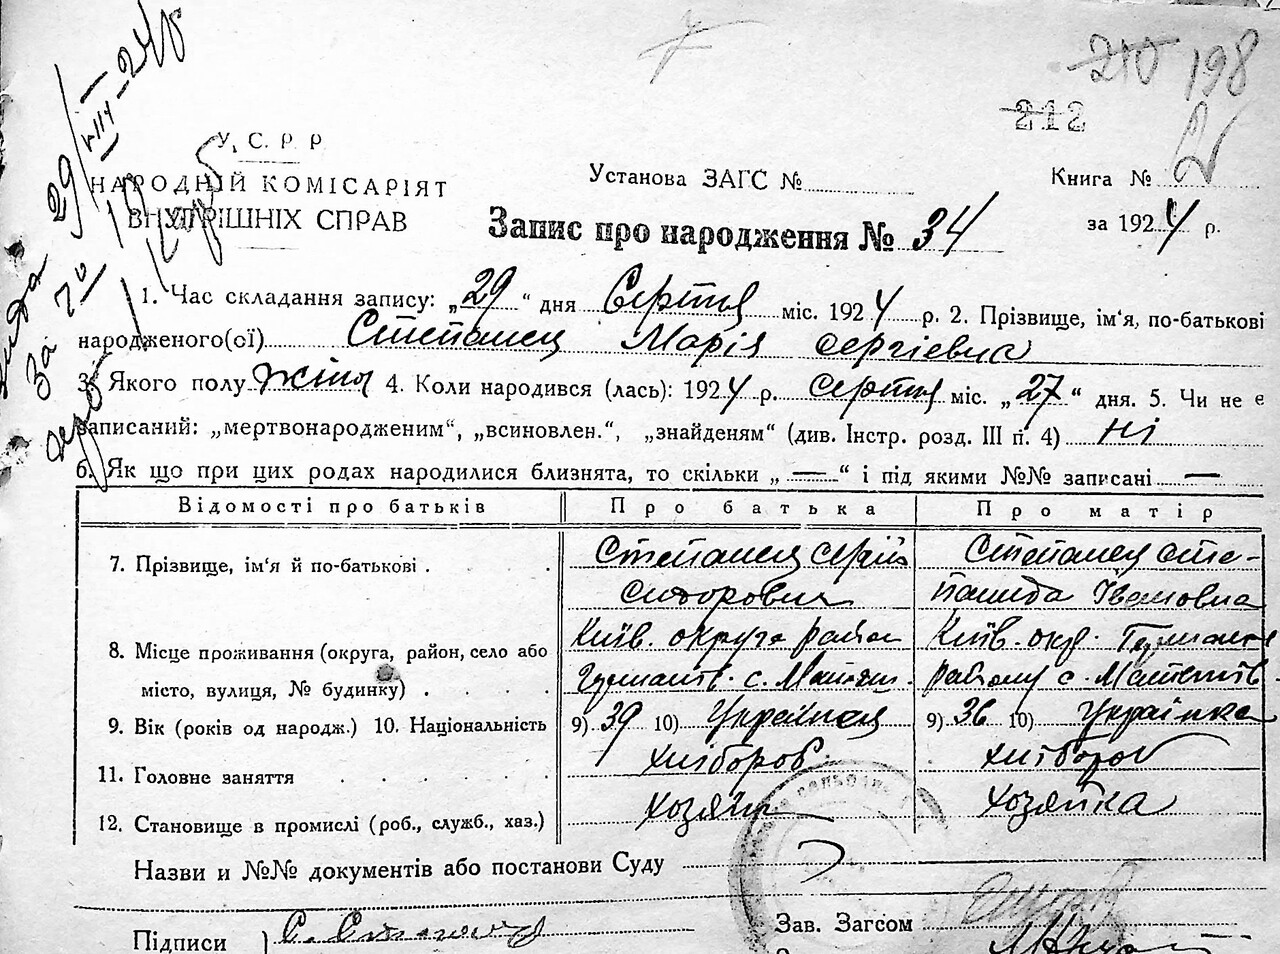 210 198
212
У. С. Р. Р.
НАРОДНІЙ КОМІСАРІЯТ
ВНУТРІШНІХ СПРАВ
29/VIII–24 р
За №
Установа ЗАГС №
Книга №
Запис про народження № 34
за 1924 р.
1. Час складання запису: „29“ дня Серпня міс. 1924 р. 2. Прізвище, ім'я, по-батькові
народженого(ої) Степанец Марія Сергієвна
3. Якого полу жіноч 4. Коли народився (лась): 1924 р. серпня міс. „27“ дня. 5. Чи не є
записаний: „мертвонародженим“, „всиновлен.“, „знайденям“ (див. Інстр. розд. III п. 4) ні
6. Як що при цих родах народилися близнята, то скільки „—“ і під якими №№ записані —
Відомості про батьків Про батька Про матір
7. Прізвище, ім'я й по-батькові . . . Степанец Сергій Сидорович Степанец Степанида Івановна
8. Місце проживання (округа, район, село або
місто, вулиця, № будинку) . . . . Київ. округа район с. Київ. окр. району с.
9. Вік (років од народж.) 10. Національність 9) 39 10) Українец 9) 36 10) Українка
11. Головне заняття . . . . . хлібороб хлібороб
12. Становище в промислі (роб., служб., хаз.) хозяїн хозяйка
Назви и №№ документів або постанови Суду
Підписи С. Степанец
Зав. Загсом